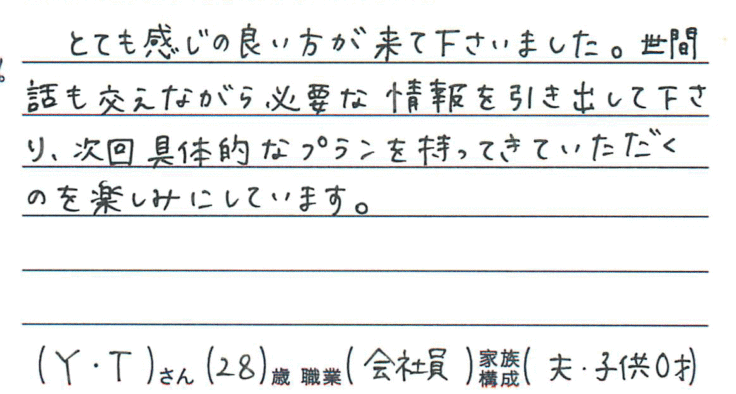 とても感じの良い方が来て下さいました。世間
話も交えながら必要な情報を引き出して下さ
り、次回具体的なプランを持ってきていただく
のを楽しみにしています。
(Y・T)さん(28)歳 職業(会社員)家族構成(夫・子供0才)